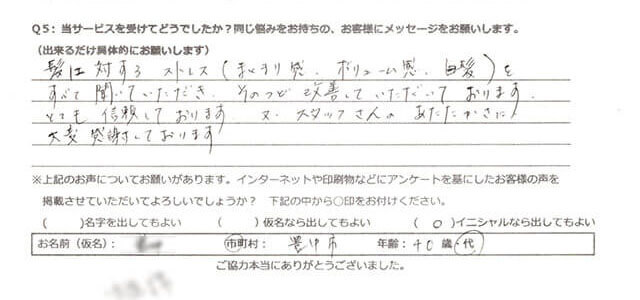 Q5：当サービスを受けてどうでしたか？同じ悩みをお持ちの、お客様にメッセージをお願いします。
（出来るだけ具体的にお願いします）
髪に対するストレス（まとまり感、ボリューム感、白髪）を
すべて聞いていただき、そのつど改善していただいております。
とても信頼しております。又、スタッフさんのあたたかさに
大変感謝しております
※上記のお声についてお願いがあります。インターネットや印刷物などにアンケートを基にしたお客様の声を
掲載させていただいてよろしいでしょうか？　下記の中から○印をお付けください。
（　　）名字を出してもよい　（　　）仮名なら出してもよい　（ ○ ）イニシャルなら出してもよい
お名前（仮名）：　市町村：豊中市　年齢：40歳・代
ご協力本当にありがとうございました。